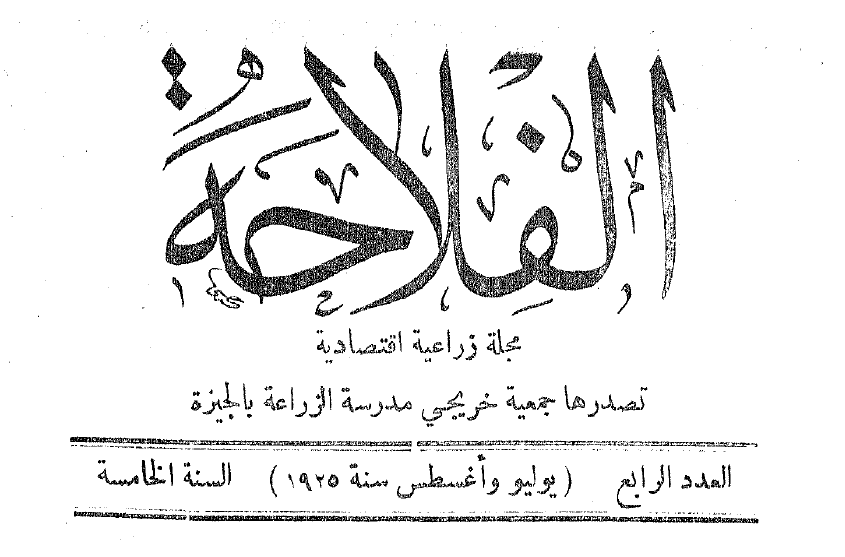 الفلاحة
مجلة زراعية اقتصادية
تصدرها جمعية خريجي مدرسة الزراعة بالجيزة
العدد الرابع (يوليو وأغسطس سنة ١٩٢٥) السنة الخامسة